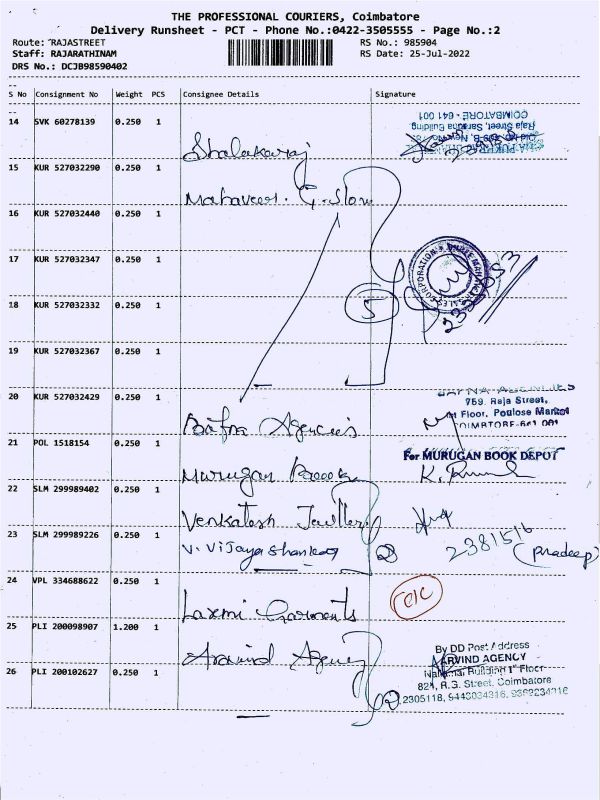 THE PROFESSIONAL COURIERS, Coimbatore
Delivery Runsheet - PCT - Phone No.:0422-3505555 - Page No.:2
Route: RAJASTREET RS No.: 985904
Staff: RAJARATHINAM RS Date: 25-Jul-2022
DRS No.: DCJB98590402
S No Consignment No Weight PCS Consignee Details Signature
14 SVK 60278139 0.250 1
Raja Street, Saradha Building
COIMBATORE - 641 001
15 KUR 527032290 0.250 1
Mahaveer. G. Store
16 KUR 527032440 0.250 1
17 KUR 527032347 0.250 1
18 KUR 527032332 0.250 1
5
19 KUR 527032367 0.250 1
20 KUR 527032429 0.250 1
759. Raja Street,
Floor, Poulose Market
COIMBATORE-641 001
Agencies
21 POL 1518154 0.250 1
For MURUGAN BOOK DEPOT
Murugan Book
22 SLM 299989402 0.250 1
Venkatesh
23 SLM 299989226 0.250 1
V. Vijaya Shankar 2 2381516 (Pradeep)
24 VPL 334688622 0.250 1
Laxmi Garments
25 PLI 200098907 1.200 1
Aravind Agency
By DD Post Address
ARVIND AGENCY
26 PLI 200102627 0.250 1
Building 1st Floor
82, R.G. Street, Coimbatore
2
2305118, 9443034316, 9362234316